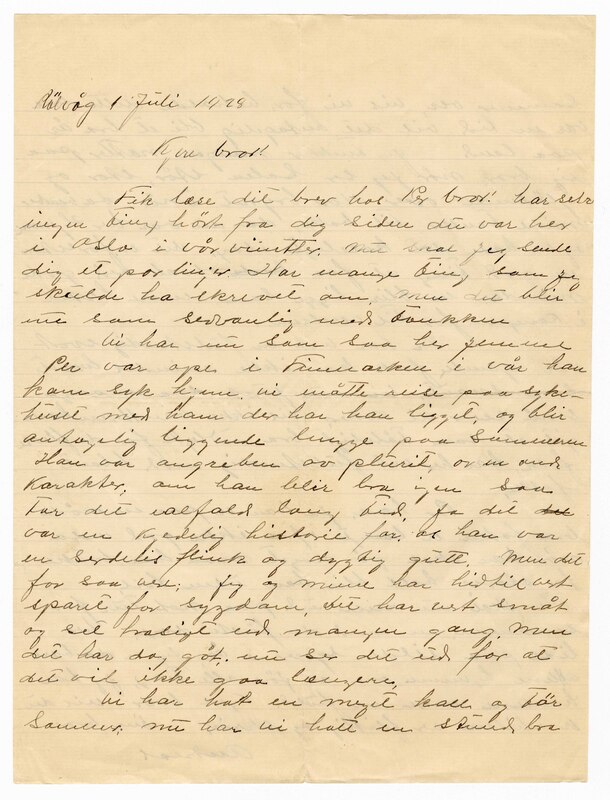 Rölvåg 1 Juli 1928
Kjere bror!
Fik læse dit brev hos Per bror. har
ingen ting hört fra dig siden du var her
i Oslo i vår vintter. Nu skal jeg sende
dig et por linjer. Har mange ting som jeg
skulde ha skrevet om, men det blir
nu som sedvanlig med tankken
Vi har nu som saa her jemme
Per var oppe i Finmarken i vår han
kom syk hjem. vi måtte reise paa syke-
huset med ham der har han ligget, og blir
antagelig liggende lengge paa Sommeren
Han var angreben av plurit, av en ond
Karakter, om han blir bra igen saa
tar det ialfald lang tid, ja det
var en kjedelig historie for os han var
en serdelis flink og dygtig gutt. Men det
for saa vere; Jeg og mine har hidtil vert
sparet for sygdam, det har vert småt
og set trasigt ud mangen gang, Men
det har dog göt, nu ser det ud for at
det vil ikke gaa længere,
Vi har hat en meget kall og tör
Sommer. nu har vi hatt en stund bra